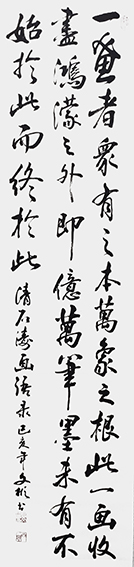 一畫者衆有之本萬象之根此一画收
盡鴻濛之外即億萬筆墨未有不
始於此而終於此
清石濤画语录己亥年书